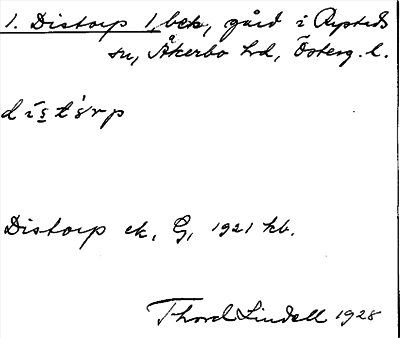 1. Distorp 1, bek, gård i Rystads
sn, Åkerbo hd, Österg. l.
dístòrp
Distorp ek, G, 1921 kb.
Thord Lindell 1928